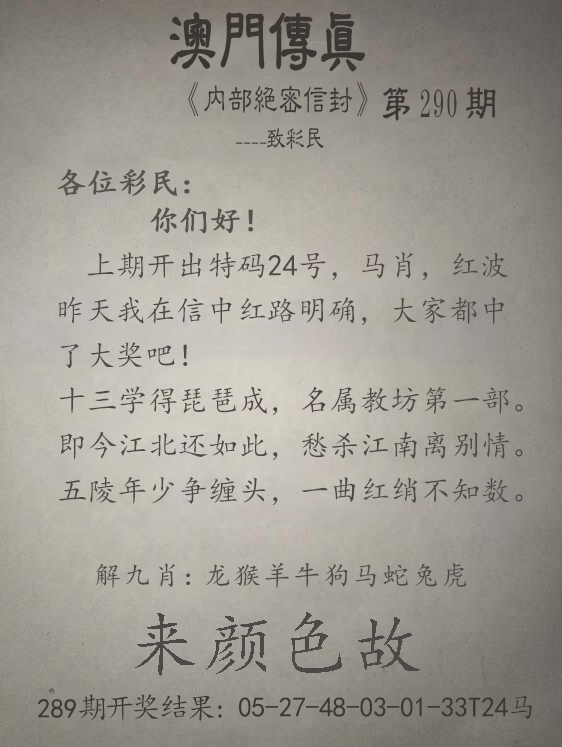 澳門傳眞
《内部絕密信封》第290期
----致彩民
各位彩民：
你们好！
上期开出特码24号，马肖，红波
昨天我在信中红路明确，大家都中
了大奖吧！
十三学得琵琶成，名属教坊第一部。
即今江北还如此，愁杀江南离别情。
五陵年少争缠头，一曲红绡不知数。
解九肖：龙猴羊牛狗马蛇兔虎
来颜色故
289期开奖结果：05-27-48-03-01-33T24马